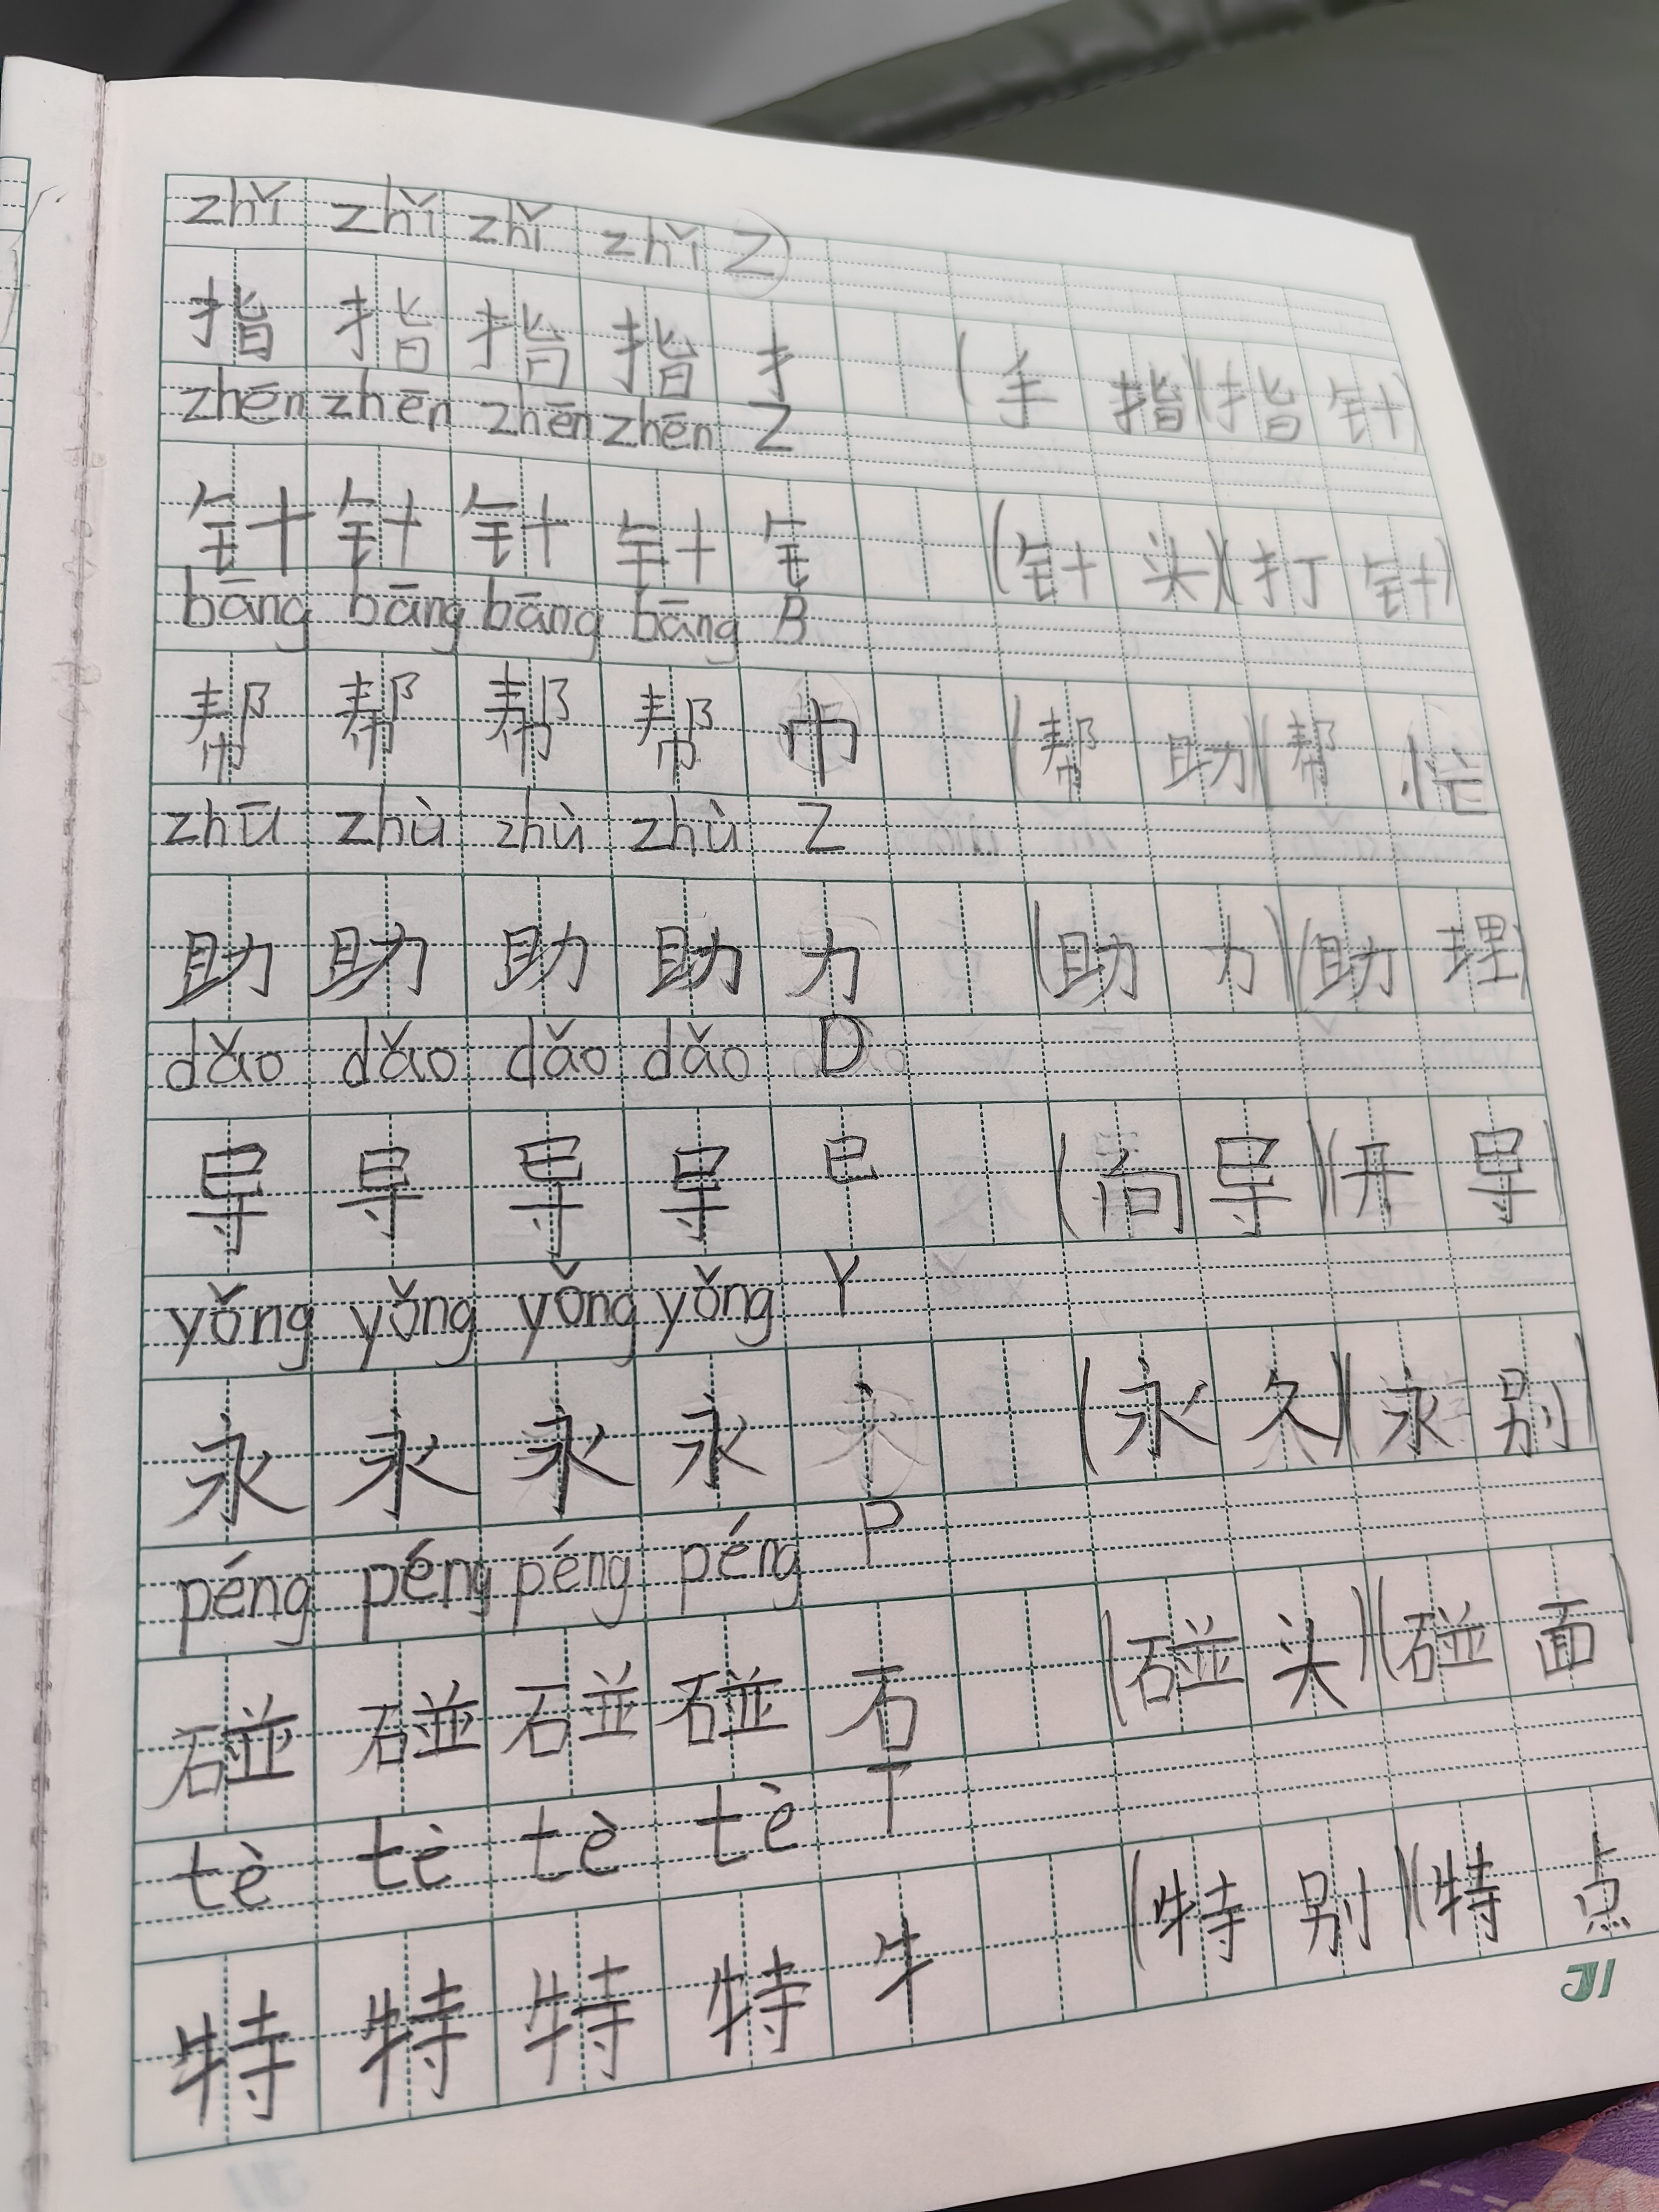 zhǐ zhǐ zhǐ zhǐ Z
指 指 指 指 扌 (手指)(指针)
zhēn zhēn zhēn zhēn Z
针 针 针 针 钅 (针头)(打针)
bāng bāng bāng bāng B
帮 帮 帮 帮 巾 (帮助)(帮忙)
zhū zhù zhù zhù Z
助 助 助 助 力 (助力)(助理)
dǎo dǎo dǎo dǎo D
导 导 导 导 巳 (向导)(开导)
yǒng yǒng yǒng yǒng Y
永 永 永 永 (永久)(永别)
péng péng péng péng P
碰 碰 碰 碰 石 (碰头)(碰面)
tè tè tè tè T
特 特 特 特 牜 (特别)(特点